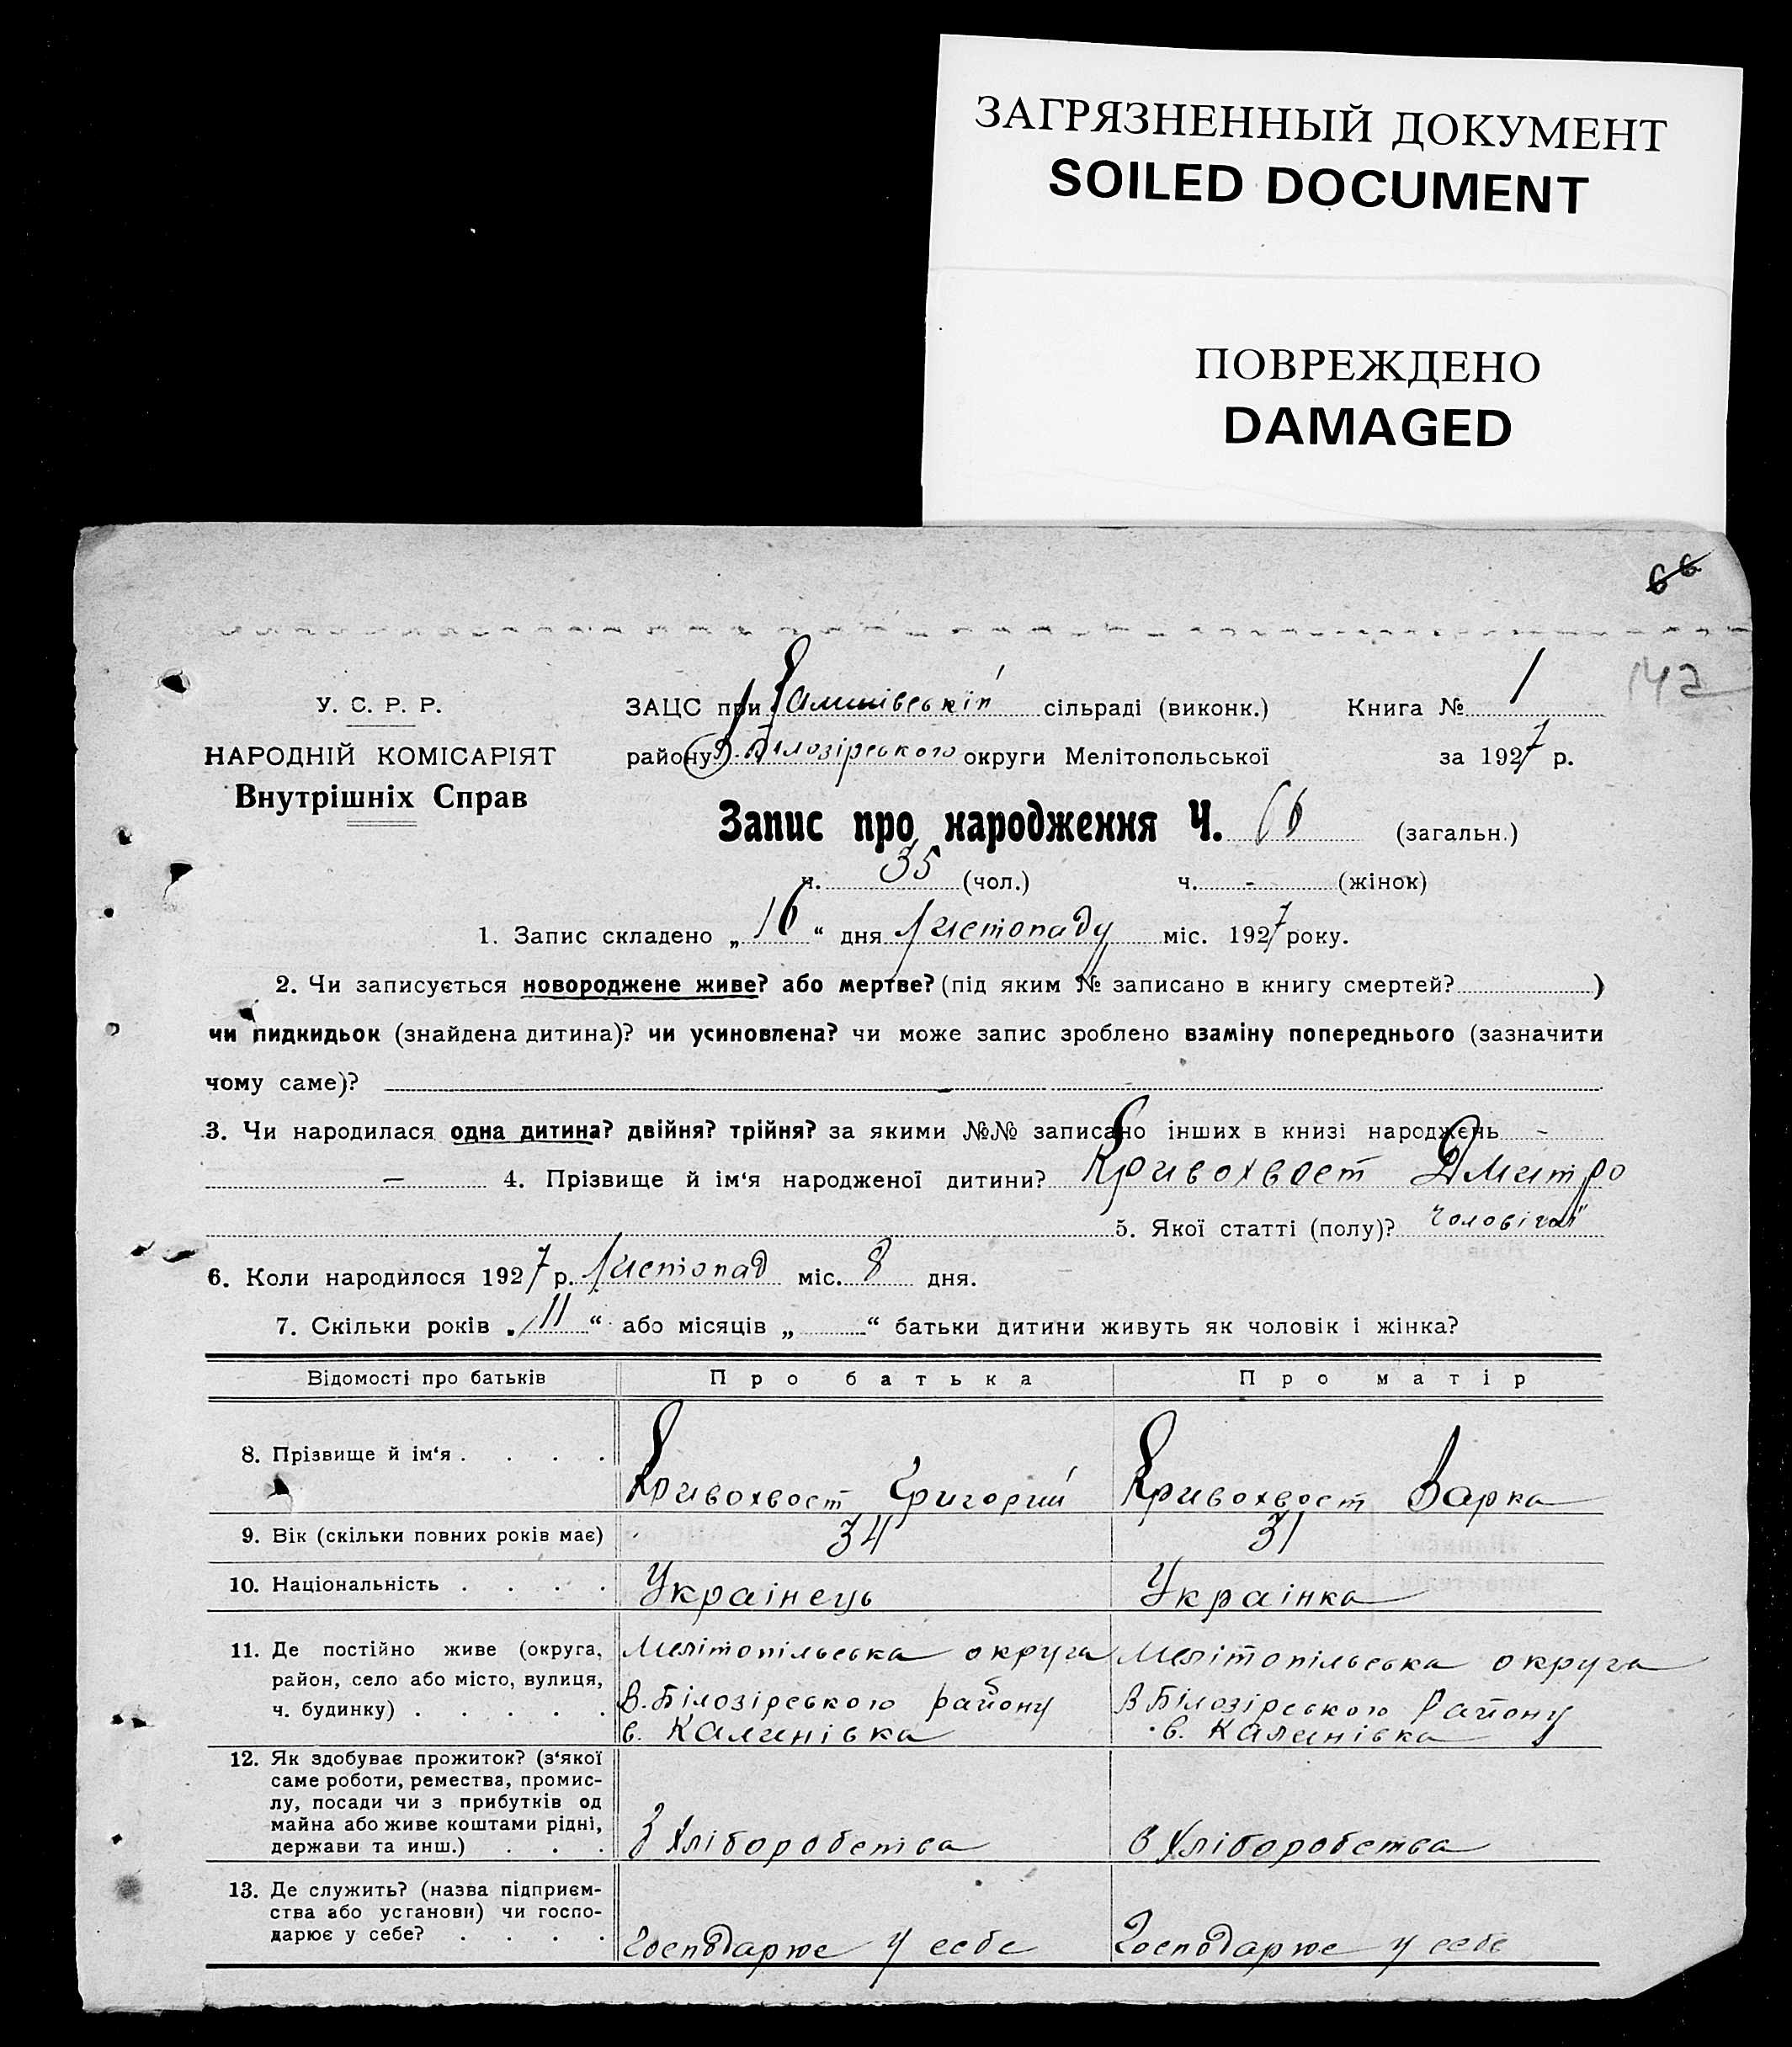 ЗАГРЯЗНЕННЫЙ ДОКУМЕНТ
SOILED DOCUMENT
ПОВРЕЖДЕНО
DAMAGED
66
142
У. С. Р. Р.
НАРОДНІЙ КОМІСАРІЯТ
Внутрішніх Справ
ЗАЦС при сільраді (виконк.) Книга № 1
району В. Білозірського округи Мелітопольської за 1927 р.
Запис про народження Ч. 66 (загальн.)
ч. 35 (чол.) ч. - (жінок)
1. Запис складено „16“ дня Листопаду міс. 1927 року.
2. Чи записується новороджене живе? або мертве? (під яким № записано в книгу смертей? )
чи пидкидьок (знайдена дитина)? чи усиновлена? чи може запис зроблено взаміну попереднього (зазначити
чому саме)?
3. Чи народилася одна дитина? двійня? трійня? за якими №№ записано інших в книзі народжень -
— 4. Прізвище й ім‘я народженої дитини? Кривохвост Дмитро
5. Якої статті (полу)? Чоловічої
6. Коли народилося 1927 р. Листопад міс. 8 дня.
7. Скільки років „11“ або місяців „ “ батьки дитини живуть як чоловік і жінка?
Відомості про батьків Про батька Про матір
8. Прізвище й ім‘я . . . . Кривохвост Григорий Кривохвост Варка
9. Вік (скільки повних років має) 34 31
10. Національність . . . . Украінець Украінка
11. Де постійно живе (округа, Мелітопільська округа Мелітопільська округа
район, село або місто, вулиця, В. Білозірського району В Білозірського Району
ч. будинку) . . . . . с. Калинівка с. Калинівка
12. Як здобуває прожиток? (з‘якої
саме роботи, ремества, промис-
лу, посади чи з прибутків од
майна або живе коштами рідні,
держави та инш.) . . . З Хліборобства З Хліборобства
13. Де служить? (назва підприєм-
ства або установи) чи госпо-
дарює у себе? . . . . Господарює у себе Господарює у себе